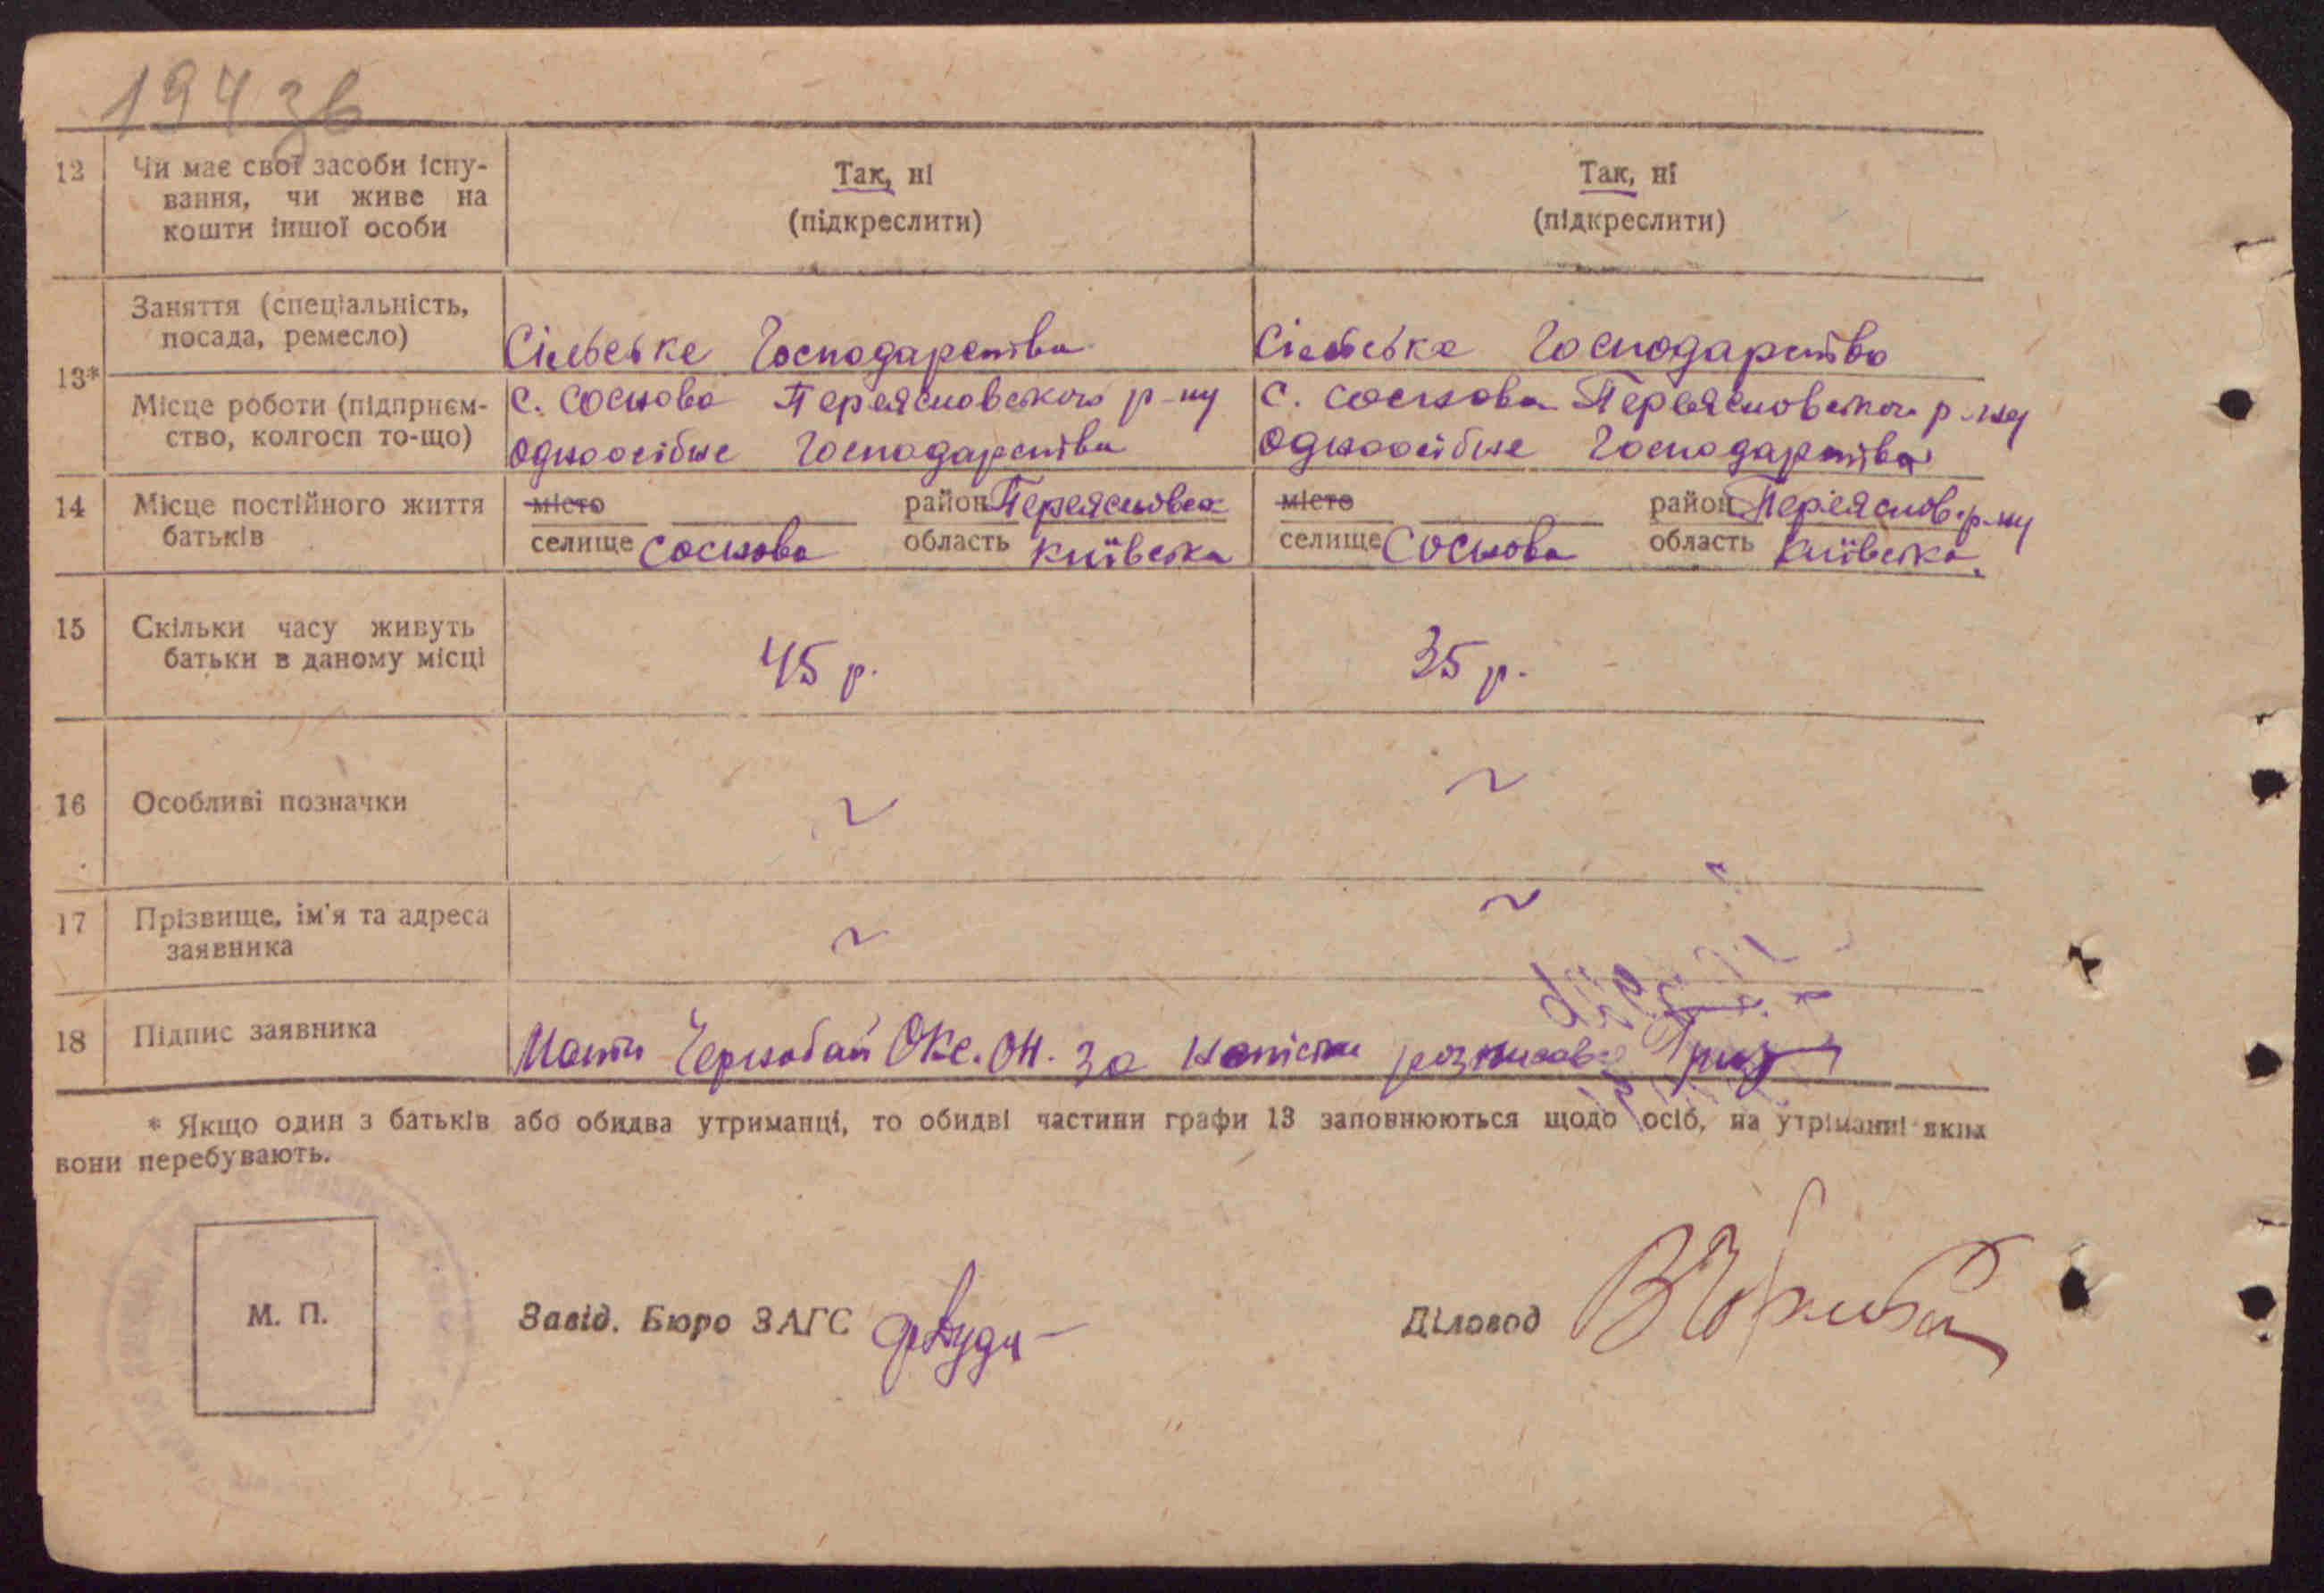 194 зв
12 Чи має свої засоби існу-
вання, чи живе на
кошти іншої особи
Так, ні
(підкреслити)
Так, ні
(підкреслити)
13* Заняття (спеціальність,
посада, ремесло)
Сільське Господарства
Сільська Господарство
Місце роботи (підприєм-
ство, колгосп то-що)
с. Соснова Переясновского р-ну
Одноосібне Господарства
с. Соснова Переясновского р-ну
Одноосібне Господарства
14 Місце постійного життя
батьків
місто район Переясновск
селище Соснова область Київска
місто район Переяснов. р-ну
селище Соснова область Київска
15 Скільки часу живуть
батьки в даному місці
45 р.
35 р.
16 Особливі позначки
~
~
17 Прізвище, ім'я та адреса
заявника
~
~
18 Підпис заявника
Мати Чернобай Окс. Он. за
* Якщо один з батьків або обидва утриманці, то обидві частини графи 13 заповнюються щодо осіб, на утріманні яких
вони перебувають.
М. П.
Завід. Бюро ЗАГС
Діловод